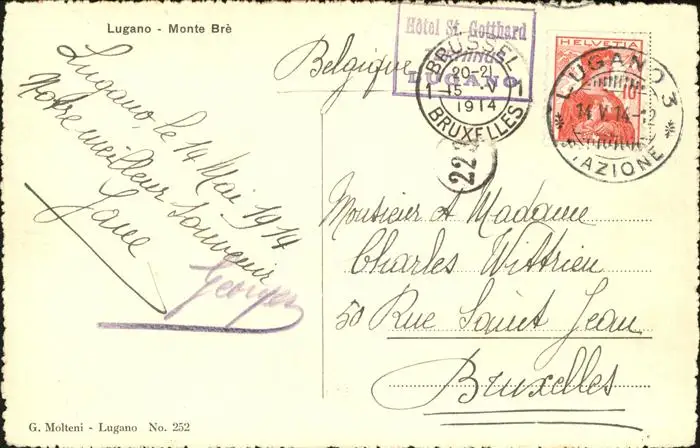 Lugano - Monte Brè
Lugano, le 14 Mai 1914
Notre meilleur souvenir
Jane
Georges
G. Molteni - Lugano No. 252
Belgique
Hôtel St. Gotthard
TERMINUS
LUGANO
BRUSSEL
20-21
1 15 V 1
1914
BRUXELLES
222
HELVETIA
LUGANO 3
14 V 14-12
STAZIONE
Monsieur et Madame
Charles Wittrien
50 Rue Saint Jean
Bruxelles